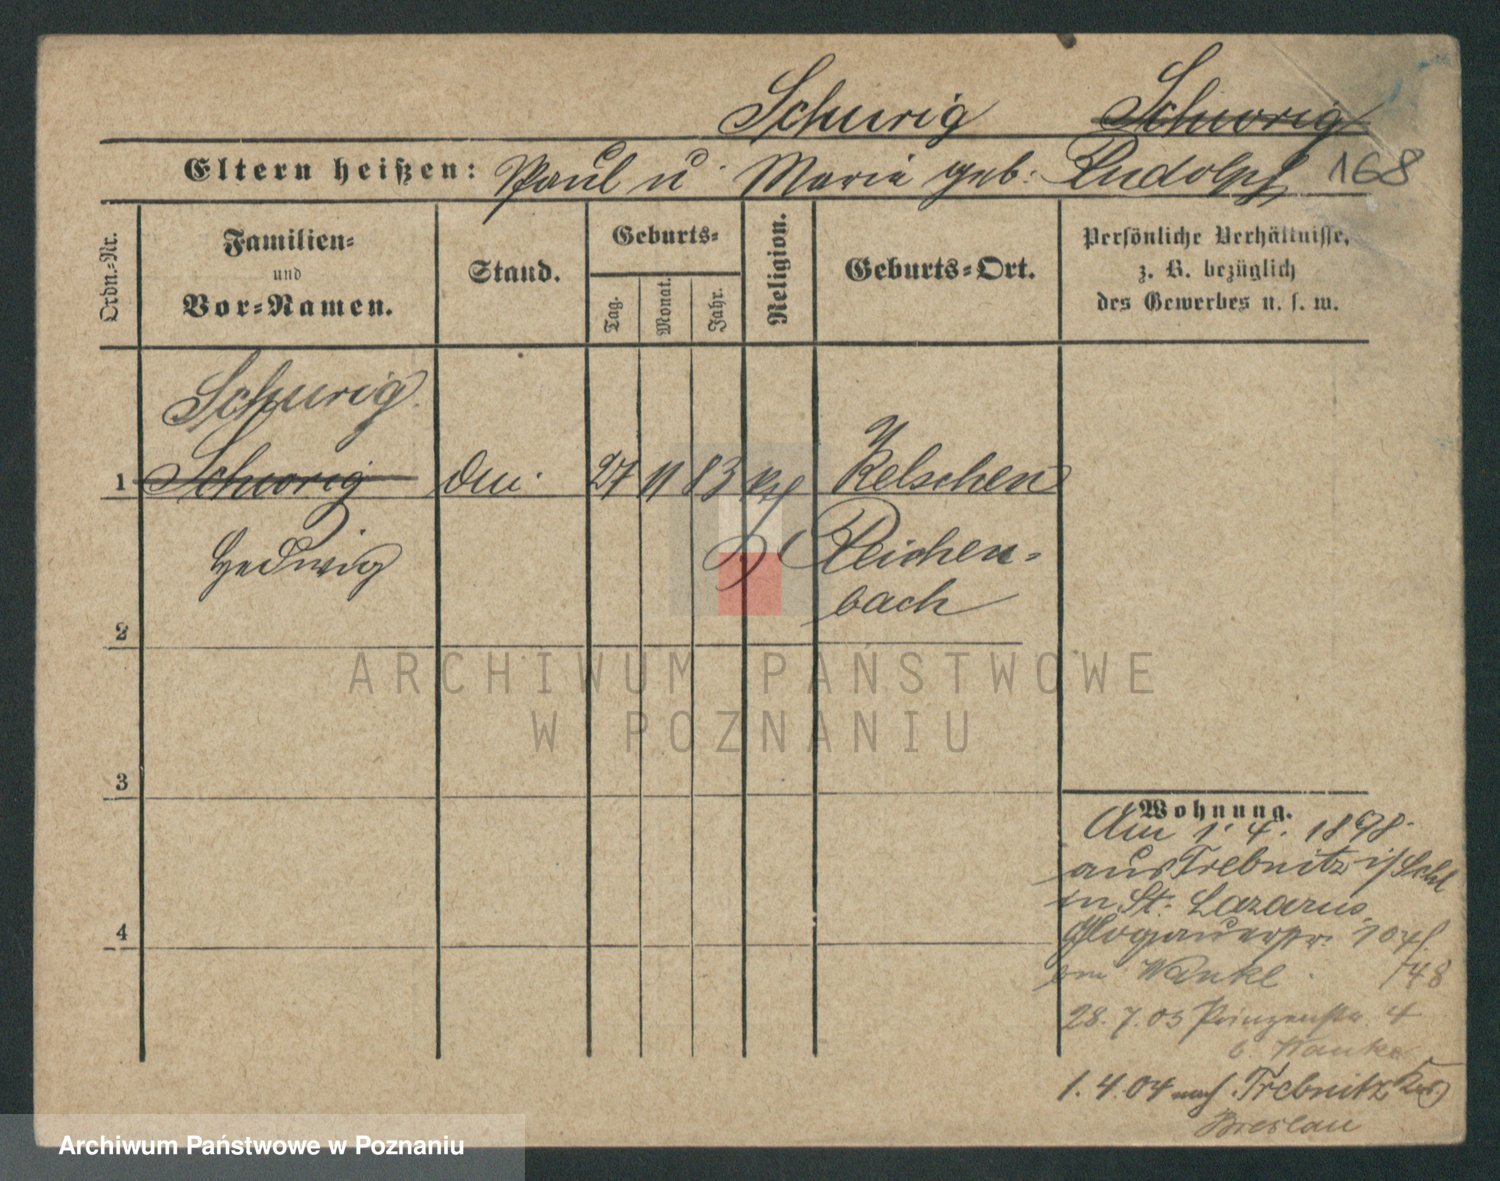 Schurig Schworig
Eltern heißen: Paul u Maria geb: Rudolph 168
Ordn.-Nr.
Familien-
und
Vor-Namen.
Stand.
Geburts-
Tag.
Monat.
Jahr.
Religion.
Geburts-Ort.
Persönliche Verhältnisse,
z. B. bezüglich
des Gewerbes u. s. w.
Schurig
1 Schworig 27 11 83 Kelschen
Hedwig Reichen-
bach
2
3
4
Wohnung.
Am 1. 4. 1898
aus Trebnitz i/Schl
in St. Lazarus
Glogauerstr. 104/
Wanke 748
28. 7. 03 Prinzenstr. 4
b. Wanke
1. 4. 04 nach Trebnitz
Breslau
ARCHIWUM PAŃSTWOWE
W POZNANIU
Archiwum Państwowe w Poznaniu